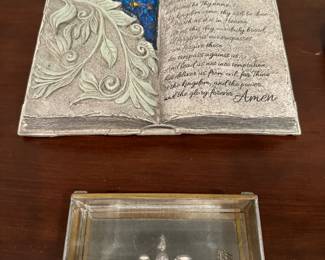 Hallowed be Thy name.
Thy Kingdom come, thy will be done
on Earth as it is in Heaven.
Give us this day our daily bread,
and forgive us our trespasses
as we forgive those
who trespass against us.
And lead us not into temptation,
but deliver us from evil, for Thine
is the Kingdom, and the power,
and the glory forever.
Amen